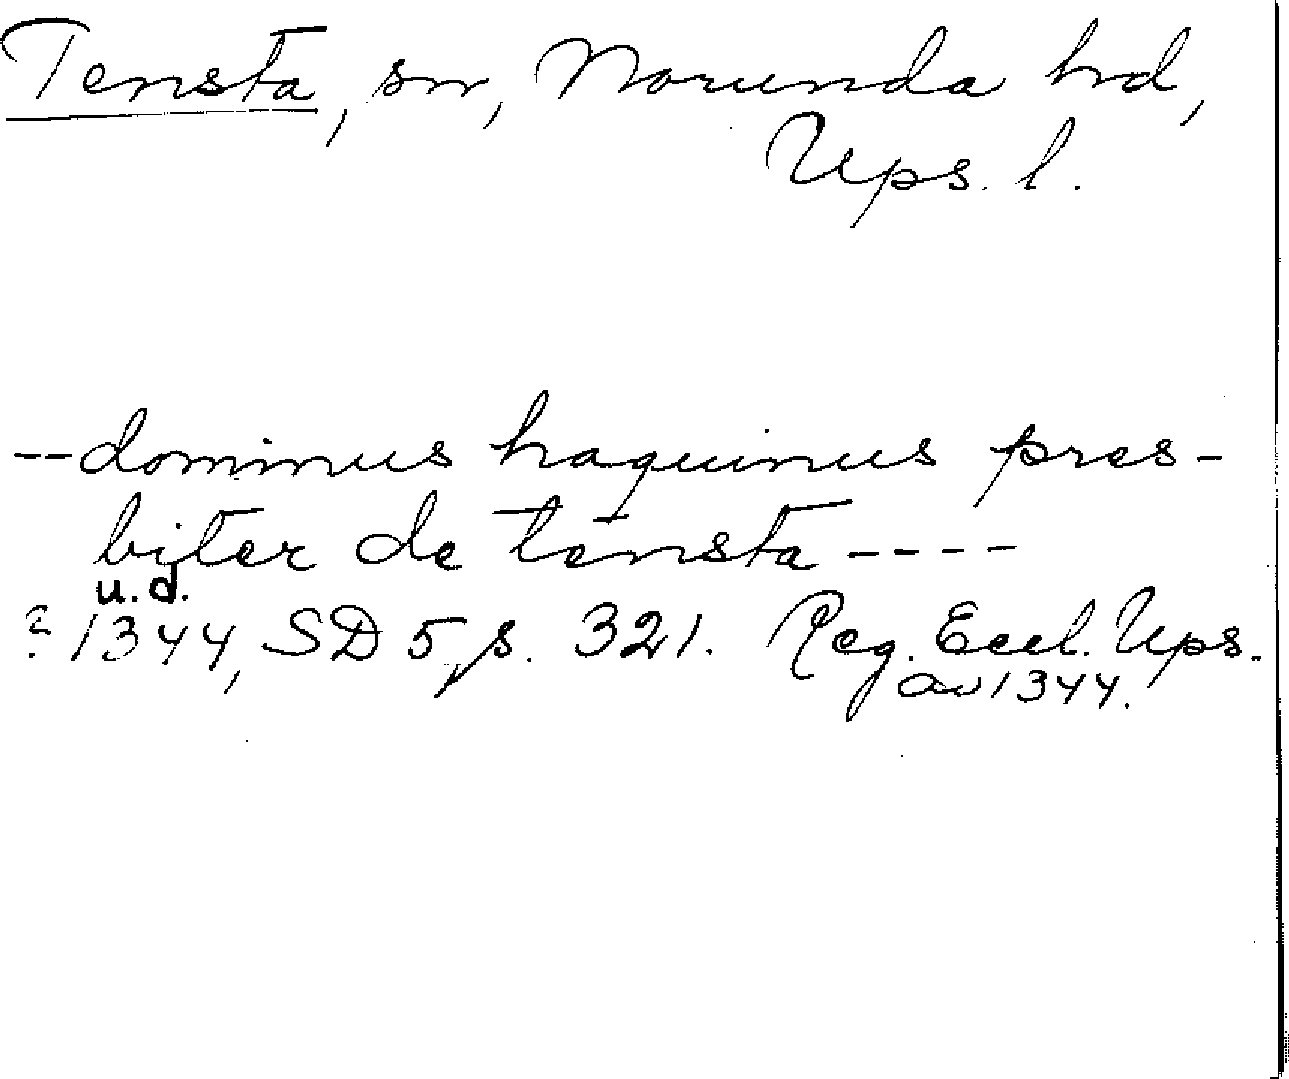 Tensta, sn, Norunda hd,
Ups. l.
--dominus haquinus pres-
biter de tensta ----
u.d.
? 1344, SD 5, s. 321. Reg. Eccl. Ups.
av 1344.